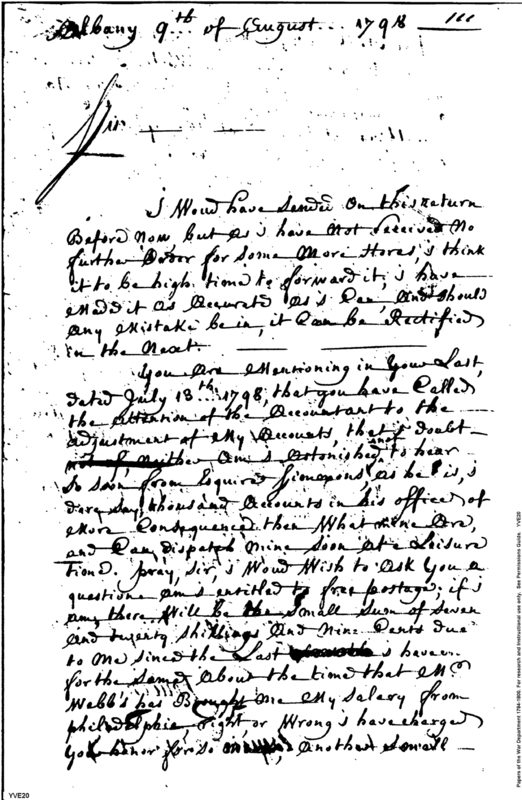 Albany 9th.. of August... 1798
111
Sir
I Woud have sended On this return
Before Now but as i have Not received No
further Order for some More Stores, i think
it to be high time to forward it, i have
Madd it As Accurate As i Can, And should
Any Mistake be in, it Can be Rectified
in the Next.
You Are Mentioning in Your Last,
dated July 18th 1798, that you have Called
the Attention of the Accountant to the
Adjustment of My Accounts, that i doubt
not of, Neither Am i Astonished not to hear
So soon from Esquire Simmons, as he is, i
dare say, thousand Accounts in his office of
More Consequence then What Mine Are,
and Can, dispatch Mine soon At a Leisure
time. pray, Sir, i Woud Wish to Ask You a
questione am i entitled to free postage; if i
am, there Will be the Small Sum of Seven
And twenty Shillings And Nine Cents due
to Me since the Last i have
for the same, About the time that Mr
Webb's has Brought Me My Salary from
philadelphia, right, or Wrong i have charged
Your honor for so Another Small
YVE20
Papers of the War Department 1784-1800. For research and instructional use only. See Permissions Guide. YVE20